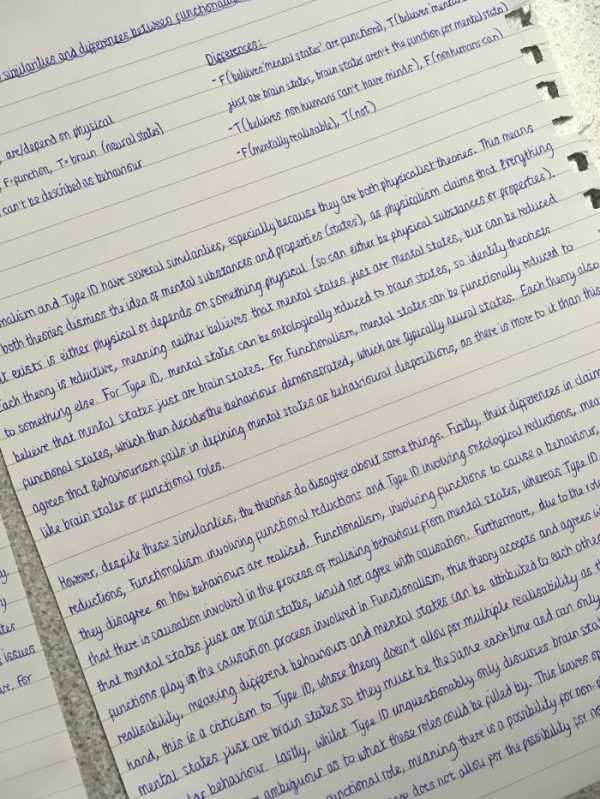 similarities and differences between functionalis
are/depend on physical
F=function, T=brain (neural states)
can't be described as behaviour
Differences:
- F(believes 'mental states' are functions), T(believes 'mental
just are brain states, brain states aren't the function for mental states)
-T(believes nonhumans can't have minds), F(nonhumans can)
-F(mentally realisable), T(not)
nalism and Type ID have several similarities, especially because they are both physicalist theories. This means
both theories dismiss the idea of mental substances and properties (states), as physicalism claims that everything
t exists is either physical or depends on something physical (so can either be physical substances or properties).
Each theory is reductive, meaning neither believes that mental states just are mental states, but can be reduced
to something else. For Type ID, mental states can be ontologically reduced to brain states, so identity theorists
believe that mental states just are brain states. For Functionalism, mental states can be functionally reduced to
functional states, which then decides the behaviour demonstrated, which are typically neural states. Each theory also
agrees that Behaviourism fails in defining mental states as behavioural dispositions, as there is more to it than this
like brain states or functional roles.
However, despite these similarities, the theories do disagree about some things. Firstly, their differences in claim
reductions, Functionalism involving functional reductions and Type ID involving ontological reductions, mea
they disagree on how behaviours are realised. Functionalism, involving functions to cause a behaviour,
that there is causation involved in the process of realising behaviour from mental states, whereas Type ID
that mental states just are brain states, would not agree with causation. Furthermore, due to the role
functions play in the causation process involved in Functionalism, this theory accepts and agrees wi
realisability, meaning different behaviours and mental states can be attributed to each other
hand, this is a criticism to Type ID, whose theory doesn't allow for multiple realisability as th
mental states just are brain states so they must be the same each time and can only
lar behaviour. Lastly, whilst Type ID unquestionably only discusses brain stat
ambiguous as to what these roles could be filled by. This leaves op
unctional role, meaning there is a possibility for non-p
does not allow for the possibility for no
y
y
ates
s issues
ve. For